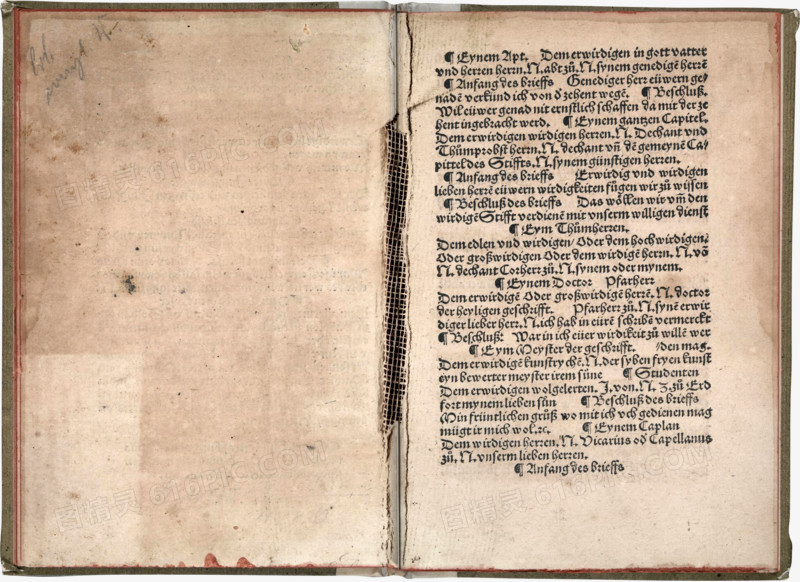 ¶ Eynem Apt. Dem erwirdigen in gott vatter
vnd herren herrn. N. abt zů. N. synem genedigē herrē
¶ Anfang des brieffs Genediger herr eüwern ge⸗
nadē verkünd ich von ð zehent wegē. ¶ Beschluß.
Wil eüwer genad nit ernstlich schaffen da mit der ze
hent ingebracht werd. ¶ Eynem gantzen Capitel.
Dem erwirdigen wirdigen herren. N. Dechant vnd
Thůmprobst herrn. N. dechant vñ dē gemeynē Ca⸗
pittel des Stiffts. N. synem günstigen herren.
¶ Anfang des brieffs Erwirdig vnd wirdigen
lieben herrē eüwern wirdigkeiten fügen wir zů wissen
¶ Beschluß des brieffs Das wöllen wir vm̄ den
wirdigē Stifft verdienē mit vnserm willigen dienst
¶ Eym Thůmherren.
Dem edlen vnd wirdigen/ Oder dem hochwirdigen/
Oder großwirdigen Oder dem wirdigē herrn. N. vō
N. dechant Corherr zů. N. synem oder mynem.
¶ Eynem Doctor Pfarherr
Dem erwirdigē Oder großwirdigē herrē. N. doctor
der heyligen geschrifft. Pfarherr zů. N. synē erwir
diger lieber herr. N. ich hab in eürē schribē vermerckt
¶ Beschluß: War in ich eüer wirdikeit zů willē wer
¶ Eym Meyster der geschrifft. den mag.
Dem erwirdigē kunstrychē. N. der syben fryen kunst
eyn bewerter meyster irem süne ¶ Studenten
Dem erwirdigen wolgelerten. J. von. N. Z. zů Erd
fort mynem lieben sün ¶ Beschluß des brieffs
Min früntlichen grůß wo mit ich vch gedienen mag
mügt ir mich wol. ꝛc. ¶ Eynem Caplan
Dem wirdigen herren. N. Vicarius oð Capellanus
zů. N. vnserm lieben herren.
¶ Anfang des brieffs